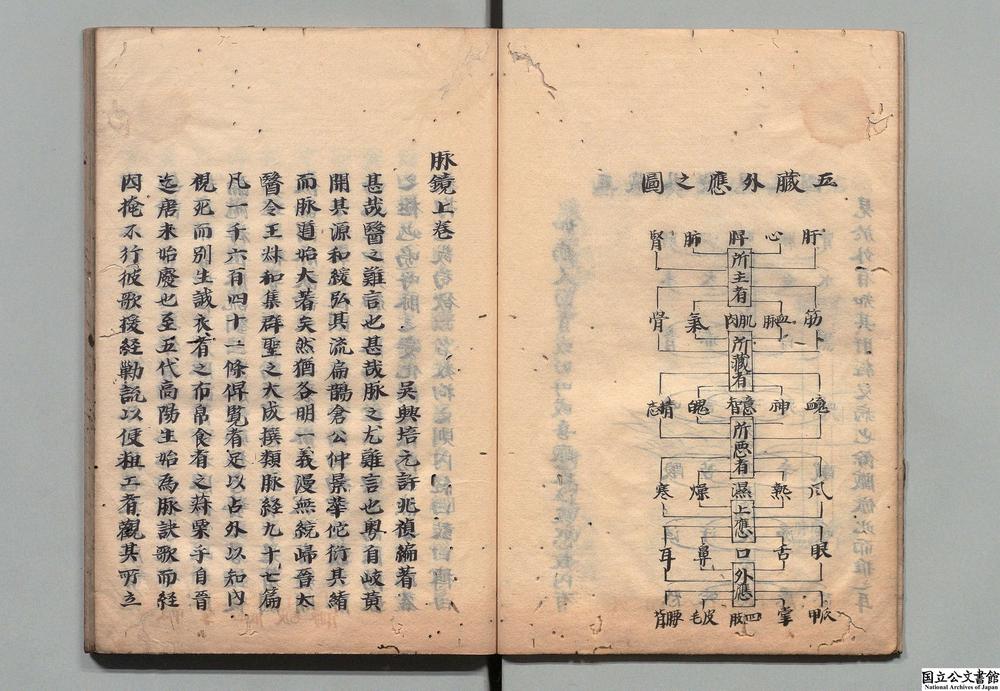 五臟外應之圖
肝 心 脾 肺 腎
所主者
筋 血脉 肌肉 氣 骨
所藏者
魂 神 意智 魄 精志
所悪者
風 熱 濕 燥 寒
上應
眼 舌 口 鼻 耳
外應
爪甲 掌 四肢 皮毛 腰背
脉鏡上巻
吳興培元許兆禎編著
甚哉醫之難言也甚哉脉之尤難言也粤自岐黄
開其源和緩弘其流扁鵲倉公仲景華佗衍其緒
而脉道始大著矣然猶各明一義漫無統歸晉太
醫令王叔和集群聖之大成撰類脉經九十七篇
凡一千六百四十一條俾覧者足以占外以知内
視死而别生誠衣者之布帛食者之菽粟乎自晉
迄唐末始廢也至五代高陽生始為脉訣歌而經
因掩不行彼歌援經勦説以便粗工者觀其所立
国立公文書館
National Archives of Japan